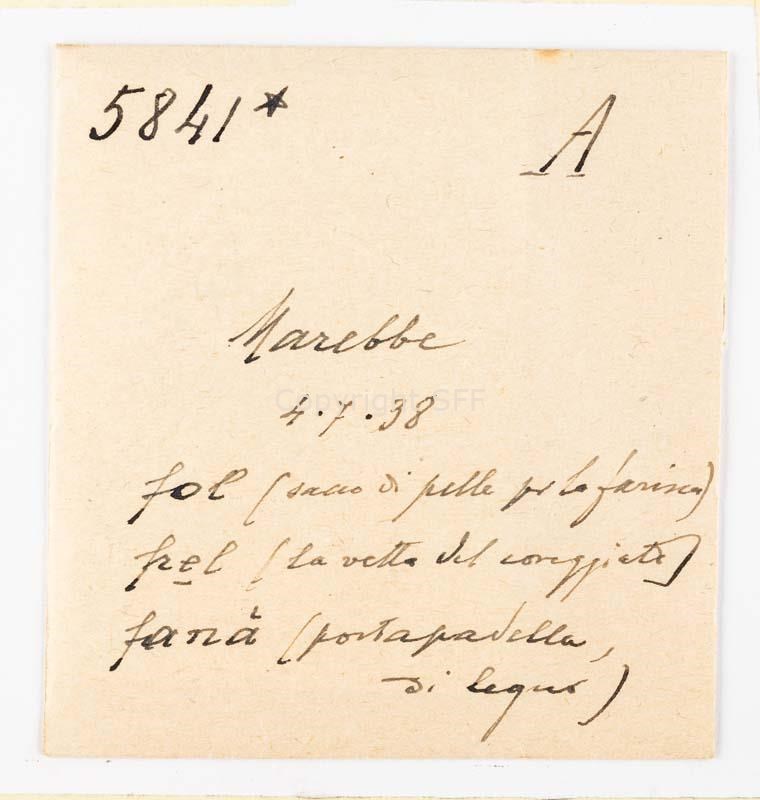 5841* A
Marebbe
Copyright SFF
4.7.38
fol (sacco di pelle per la farina)
fręl (la vetta del coreggiato)
fanà (portapadella,
di legno)